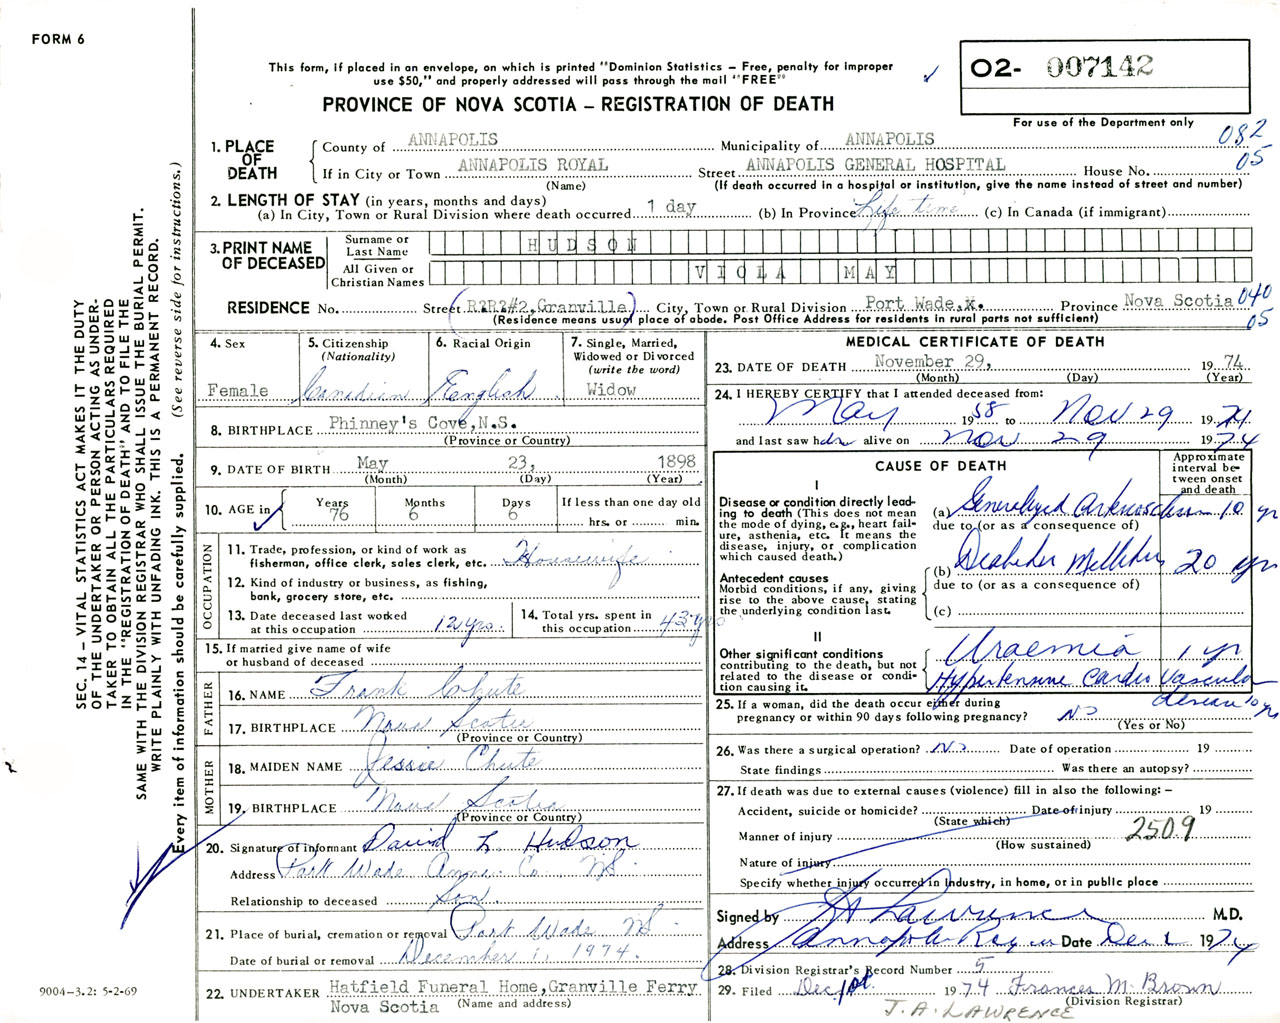 FORM 6
This form, if placed in an envelope, on which is printed "Dominion Statistics – Free, penalty for improper
use $50," and properly addressed will pass through the mail "FREE"
PROVINCE OF NOVA SCOTIA – REGISTRATION OF DEATH
02- 007142
For use of the Department only
082
05
1. PLACE OF DEATH
County of ANNAPOLIS Municipality of ANNAPOLIS
If in City or Town ANNAPOLIS ROYAL Street ANNAPOLIS GENERAL HOSPITAL House No.
(Name) (If death occurred in a hospital or institution, give the name instead of street and number)
2. LENGTH OF STAY (in years, months and days)
(a) In City, Town or Rural Division where death occurred 1 day (b) In Province Life time (c) In Canada (if immigrant)
3. PRINT NAME OF DECEASED
Surname or Last Name HUDSON
All Given or Christian Names VIOLA MAY
RESIDENCE No. Street R2R2#2, Granville City, Town or Rural Division Port Wade,x. Province Nova Scotia 040
05
(Residence means usual place of abode. Post Office Address for residents in rural parts not sufficient)
4. Sex
Female
5. Citizenship
(Nationality)
Canadian
6. Racial Origin
English
7. Single, Married,
Widowed or Divorced
(write the word)
Widow
8. BIRTHPLACE Phinney's Cove,N.S.
(Province or Country)
9. DATE OF BIRTH May 23, 1898
(Month) (Day) (Year)
10. AGE in
Years Months Days If less than one day old
76 6 6 hrs. or min.
OCCUPATION
11. Trade, profession, or kind of work as
fisherman, office clerk, sales clerk, etc. Housewife
12. Kind of industry or business, as fishing,
bank, grocery store, etc.
13. Date deceased last worked
at this occupation 12 yrs.
14. Total yrs. spent in
this occupation 43 yrs
15. If married give name of wife
or husband of deceased
FATHER
16. NAME Frank Chute
17. BIRTHPLACE Nova Scotia
(Province or Country)
MOTHER
18. MAIDEN NAME Jessie Chute
19. BIRTHPLACE Nova Scotia
(Province or Country)
20. Signature of informant David L. Hudson
Address Port Wade Anna. Co. NS.
Relationship to deceased Son.
21. Place of burial, cremation or removal Port Wade NS
Date of burial or removal December 1, 1974.
22. UNDERTAKER Hatfield Funeral Home,Granville Ferry
Nova Scotia (Name and address)
MEDICAL CERTIFICATE OF DEATH
23. DATE OF DEATH November 29, 19 74
(Month) (Day) (Year)
24. I HEREBY CERTIFY that I attended deceased from:
May 1958 to Nov 29 1974
and last saw her alive on Nov 29 1974
CAUSE OF DEATH
Approximate
interval be-
tween onset
and death
I
Disease or condition directly lead-
ing to death (This does not mean
the mode of dying, e.g., heart fail-
ure, asthenia, etc. It means the
disease, injury, or complication
which caused death.)
(a) Generalized 10 yr
due to (or as a consequence of)
(b) Diabetes Mellitus 20 yr
due to (or as a consequence of)
Antecedent causes
Morbid conditions, if any, giving
rise to the above cause, stating
the underlying condition last.
(c)
II
Other significant conditions
contributing to the death, but not
related to the disease or condi-
tion causing it.
Uraemia 1 yr
Hypertensive Cardio Vascular
disease 10 yrs
25. If a woman, did the death occur either during
pregnancy or within 90 days following pregnancy? No
(Yes or No)
26. Was there a surgical operation? No Date of operation 19
State findings Was there an autopsy?
27. If death was due to external causes (violence) fill in also the following: –
Accident, suicide or homicide? Date of injury 19
(State which)
Manner of injury 2509
(How sustained)
Nature of injury
Specify whether injury occurred in Industry, in home, or in public place
Signed by Lawrence M.D.
Address Annapolis Royal Date Dec 1 1974
28. Division Registrar's Record Number 5
29. Filed Dec 1st 1974 Frances M. Brown
(Division Registrar)
J. A. LAWRENCE
SEC. 14 – VITAL STATISTICS ACT MAKES IT THE DUTY
OF THE UNDERTAKER OR PERSON ACTING AS UNDER-
TAKER TO OBTAIN ALL THE PARTICULARS REQUIRED
IN THE "REGISTRATION OF DEATH" AND TO FILE THE
SAME WITH THE DIVISION REGISTRAR WHO SHALL ISSUE THE BURIAL PERMIT.
WRITE PLAINLY WITH UNFADING INK. THIS IS A PERMANENT RECORD.
Every item of information should be carefully supplied. (See reverse side for instructions.)
9004–3.2: 5-2-69